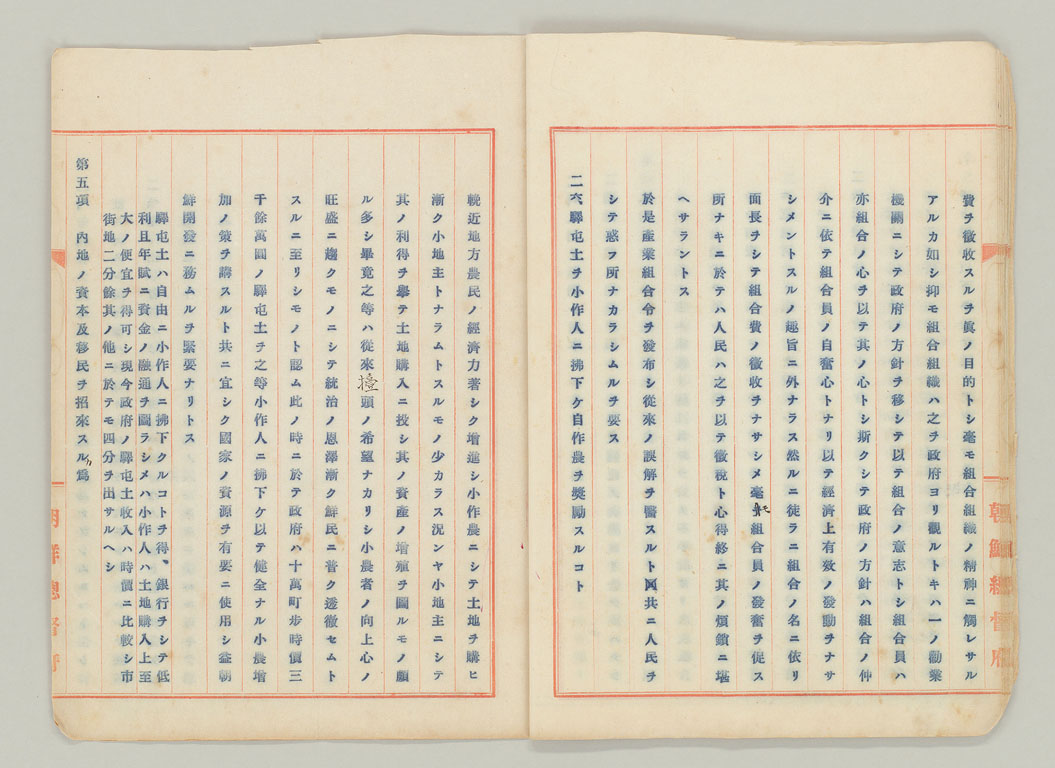 費ヲ徵收スルヲ眞ノ目的トシ毫モ組合組織ノ精神ニ觸レサル
アルカ如シ抑モ組合組織ハ之ヲ政府ヨリ觀ルトキハ一ノ勸業
機關ニシテ政府ノ方針ヲ移シテ以テ組合ノ意志トシ組合員ハ
亦組合ノ心ヲ以テ其ノ心トシ斯クシテ政府ノ方針ハ組合ノ仲
介ニ依テ組合員ノ自奮心トナリ以テ經濟上有效ノ發動ヲナサ
シメントスルノ趣旨ニ外ナラス然ルニ徒ラニ組合ノ名ニ依リ
面長ヲシテ組合費ノ徵收ヲナサシメ毫モ組合員ノ發奮ヲ促ス
所ナキニ於テハ人民ハ之ヲ以テ徵稅ト心得終ニ其ノ煩鎖ニ堪
ヘサラントス
於是產業組合令ヲ發布シ從來ノ誤解ヲ醫スルト共ニ人民ヲ
シテ惑フ所ナカラシムルヲ要ス
二六、驛屯土ヲ小作人ニ拂下ケ自作農ヲ奬勵スルコト
朝鮮總督府
輓近地方農民ノ經濟力著シク增進シ小作農ニシテ土地ヲ購ヒ
漸ク小地主トナラムトスルモノ少カラス況ンヤ小地主ニシテ
其ノ利得ヲ擧テ土地購入ニ投シ其ノ資產ノ增殖ヲ圖ルモノ頗
ル多シ畢竟之等ハ從來擡頭ノ希望ナカリシ小農者ノ向上心ノ
旺盛ニ趨クモノニシテ統治ノ恩澤漸ク鮮民ニ普ク透徹セムト
スルニ至リシモノト認ム此ノ時ニ於テ政府ハ十萬町步時價三
千餘萬圓ノ驛屯土ヲ之等小作人ニ拂下ケ以テ健全ナル小農增
加ノ策ヲ講スルト共ニ宜シク國家ノ資源ヲ有要ニ使用シ益朝
鮮開發ニ務ムルヲ緊要ナリトス
驛屯土ハ自由ニ小作人ニ拂下クルコトヲ得、銀行ヲシテ低
利且年賦ニ資金ノ融通ヲ圖ラシメハ小作人ハ土地購入上至
大ノ便宜ヲ得可シ現今政府ノ驛屯土收入ハ時價ニ比較シ市
街地二分餘其ノ他ニ於テモ四分ヲ出サルヘシ
第五項 內地ノ資本及移民ヲ招來スル爲
朝鮮總督府